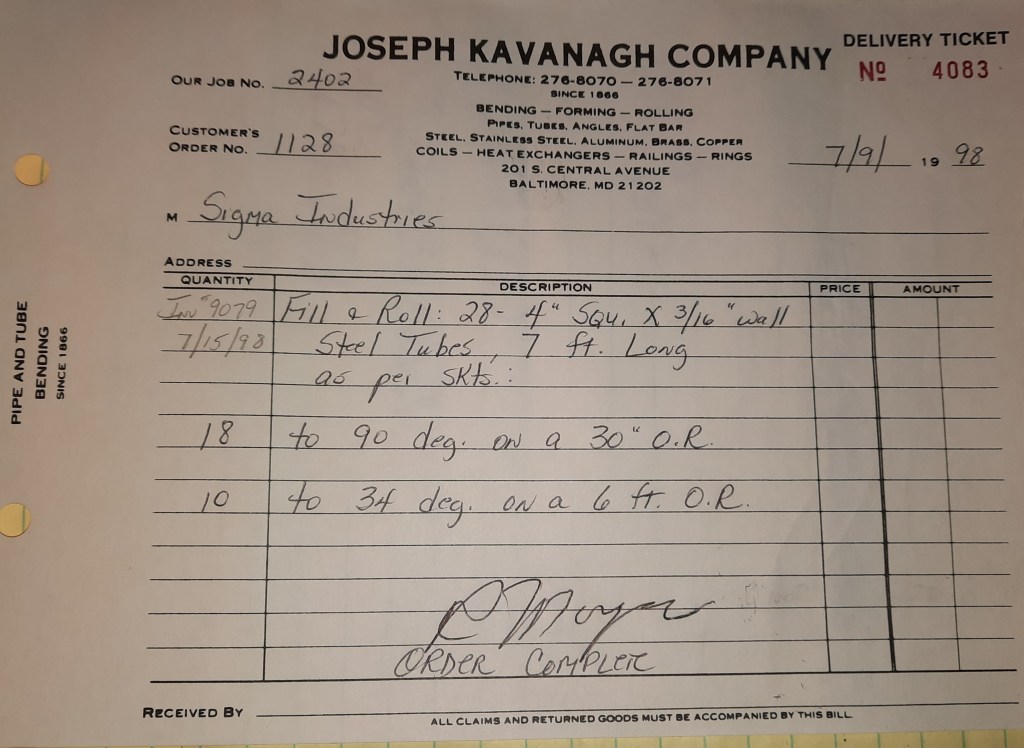 JOSEPH KAVANAGH COMPANY
DELIVERY TICKET
No 4083
OUR JOB NO. 2402
TELEPHONE: 276-8070 — 276-8071
SINCE 1866
BENDING — FORMING — ROLLING
PIPES, TUBES, ANGLES, FLAT BAR
STEEL, STAINLESS STEEL, ALUMINUM, BRASS, COPPER
COILS — HEAT EXCHANGERS — RAILINGS — RINGS
201 S. CENTRAL AVENUE
BALTIMORE, MD 21202
CUSTOMER'S
ORDER NO. 1128
7/9/ 19 98
M Sigma Industries
ADDRESS
QUANTITY DESCRIPTION PRICE AMOUNT
Inv # 9079 Fill & Roll: 28- 4" Squ. X 3/16" wall
7/15/98 Steel Tubes, 7 ft. Long
as per skts.:
18 to 90 deg. on a 30" O.R.
10 to 34 deg. on a 6 ft. O.R.
ORDER COMPLETE
RECEIVED BY
ALL CLAIMS AND RETURNED GOODS MUST BE ACCOMPANIED BY THIS BILL
PIPE AND TUBE
BENDING
SINCE 1866